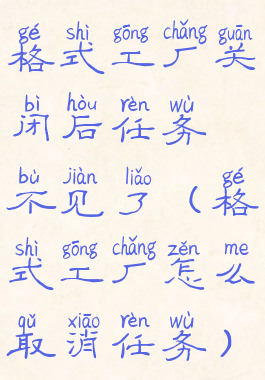 gé shì gōng chǎng guān
格式工厂关
bì hòu rèn wù
闭后任务
bù jiàn liǎo gé
不见了（格
shì gōng chǎng zěn me
式工厂怎么
qǔ xiāo rèn wù
取消任务）